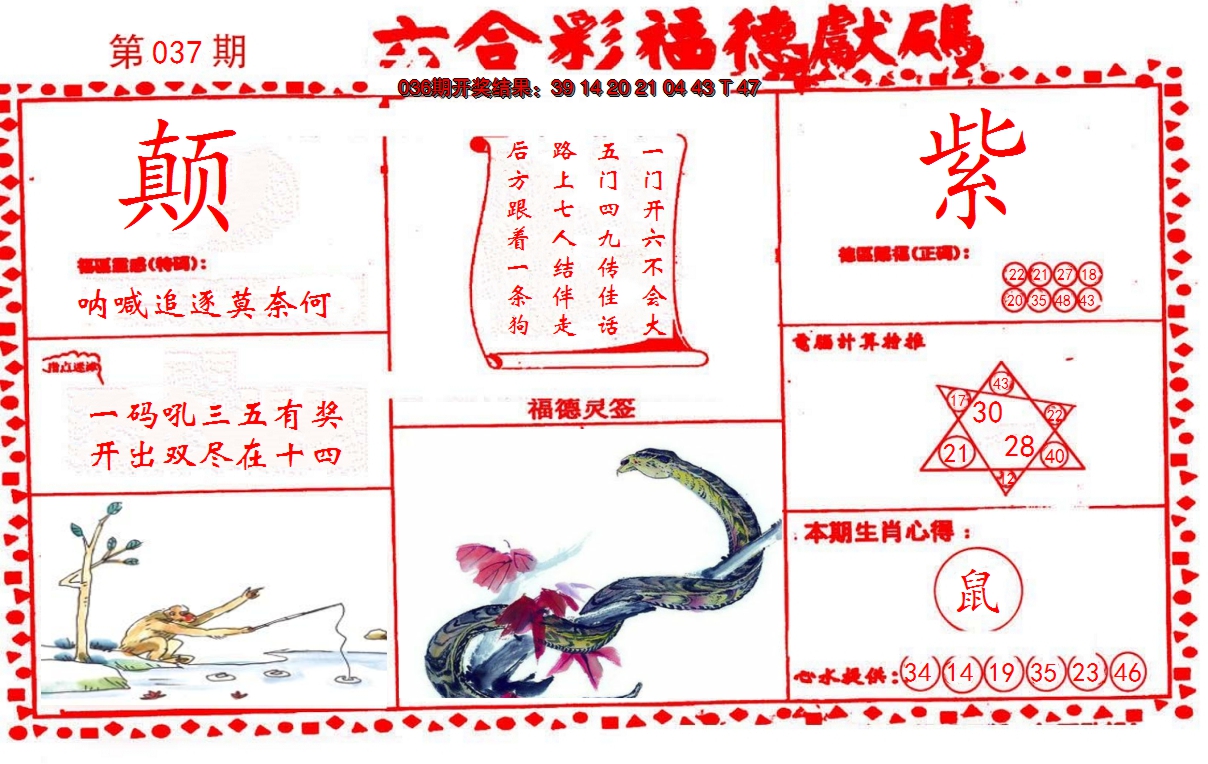 第 037 期
六合彩福德獻碼
036期开奖结果：39 14 20 21 04 43 T 47
颠
福區靈感(特碼)：
呐喊追逐莫奈何
指点迷津
一码吼三五有奖
开出双尽在十四
一门开六不会大
五门四九传佳话
路上七人结伴走
后方跟着一条狗
福德灵签
紫
德區賜福(正碼)：
22 21 27 18
20 35 48 43
電腦計算推
43
17 30 22
21 28 40
12
本期生肖心得：
鼠
心水提供：34 14 19 35 23 46